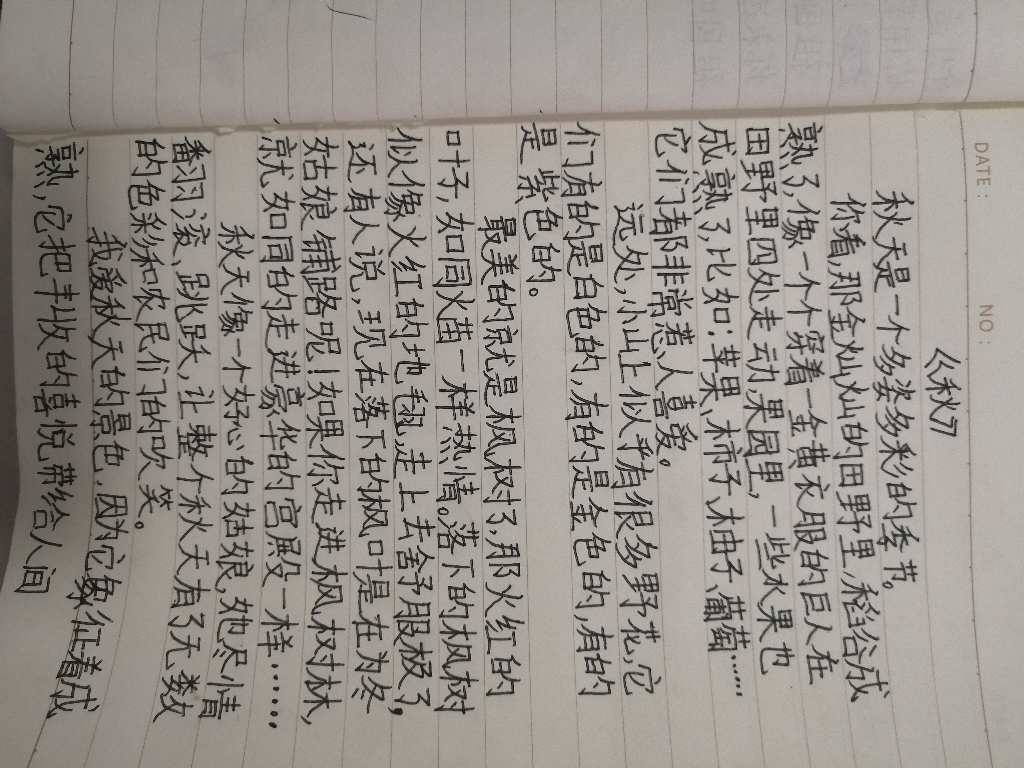 DATE:
NO:
《秋》
秋天是一个多姿多彩的季节。
你看,那金灿灿的田野里,稻谷成
熟了,像一个个穿着一金黄衣服的巨人在
田野里四处走动,果园里,一些水果也
成熟了,比如:苹果、柿子、柚子、葡萄……
它们都非常惹人喜爱。
远处,小山上似乎有很多野花,它
们有的是白色的,有的是金色的,有的
是紫色的。
最美的就是枫树了,那火红的
叶子,如同火苗一样热情。落下的枫树
似像火红的地毯,走上去舒服极了,
还有人说,现在落下的枫叶是在为冬
姑娘铺路呢!如果你走进枫树林,
就如同的走进豪华的宫殿一样……
秋天像一个好心的姑娘,她尽情
翻滚、跳跃,让整个秋天有了无数
的色彩和农民们的欢笑。
我爱秋天的景色,因为它象征着成
熟,它把丰收的喜悦带给人间